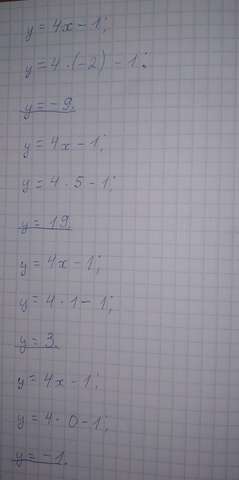 y = 4x - 1;
y = 4 · (-2) - 1;
y = -9.
y = 4x - 1;
y = 4 · 5 - 1;
y = 19.
y = 4x - 1;
y = 4 · 1 - 1;
y = 3.
y = 4x - 1;
y = 4 · 0 - 1;
y = -1.